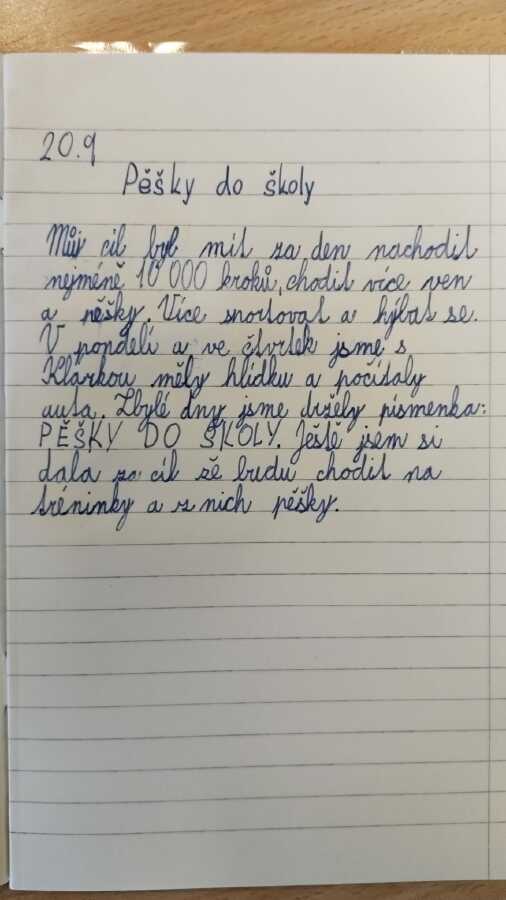 20.9
Pěšky do školy
Můj cíl byl mít za den nachodit
nejméně 10 000 kroků, chodit více ven
a pěšky. Více sportovat a hýbat se.
V pondělí a ve čtvrtek jsme s
Klárkou měly hlídku a počítaly
auta. Zbylé dny jsme držely písmenka:
PĚŠKY DO ŠKOLY. Ještě jsem si
dala za cíl žě budu chodit na
tréninky a z nich pěšky.